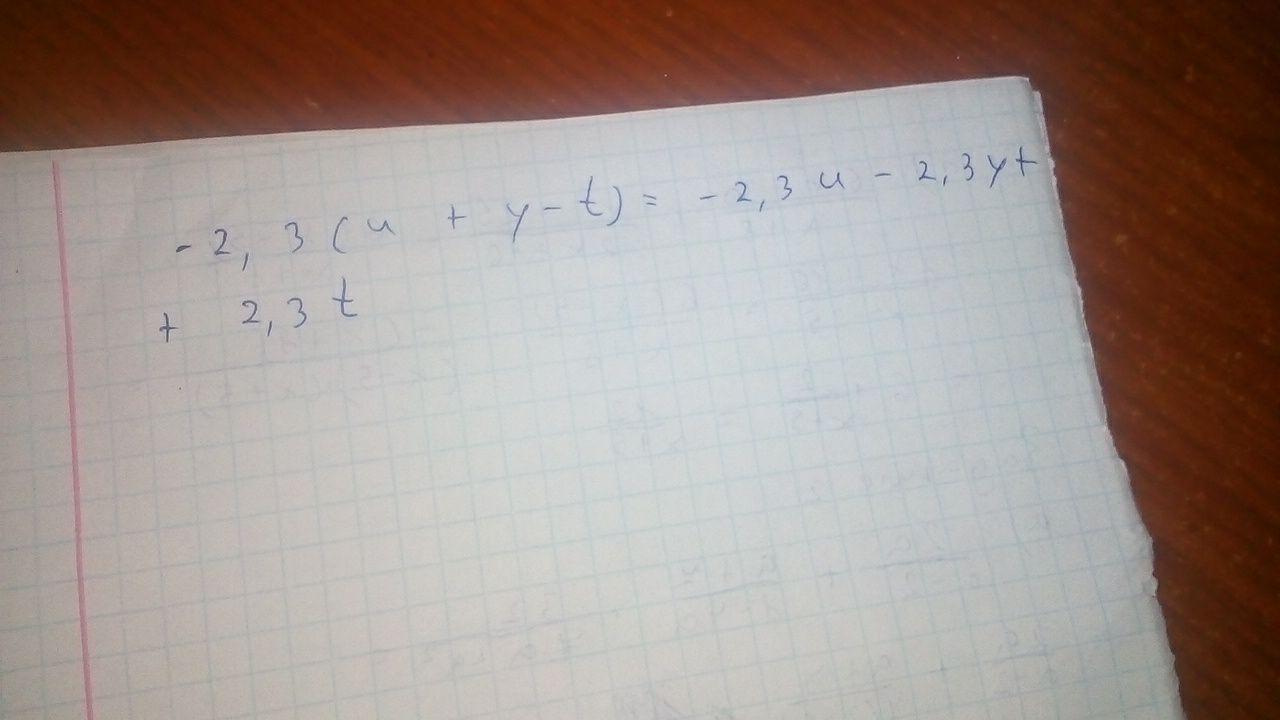 - 2, 3 (u + y - t) = - 2,3 u - 2,3 y +
+ 2,3 t